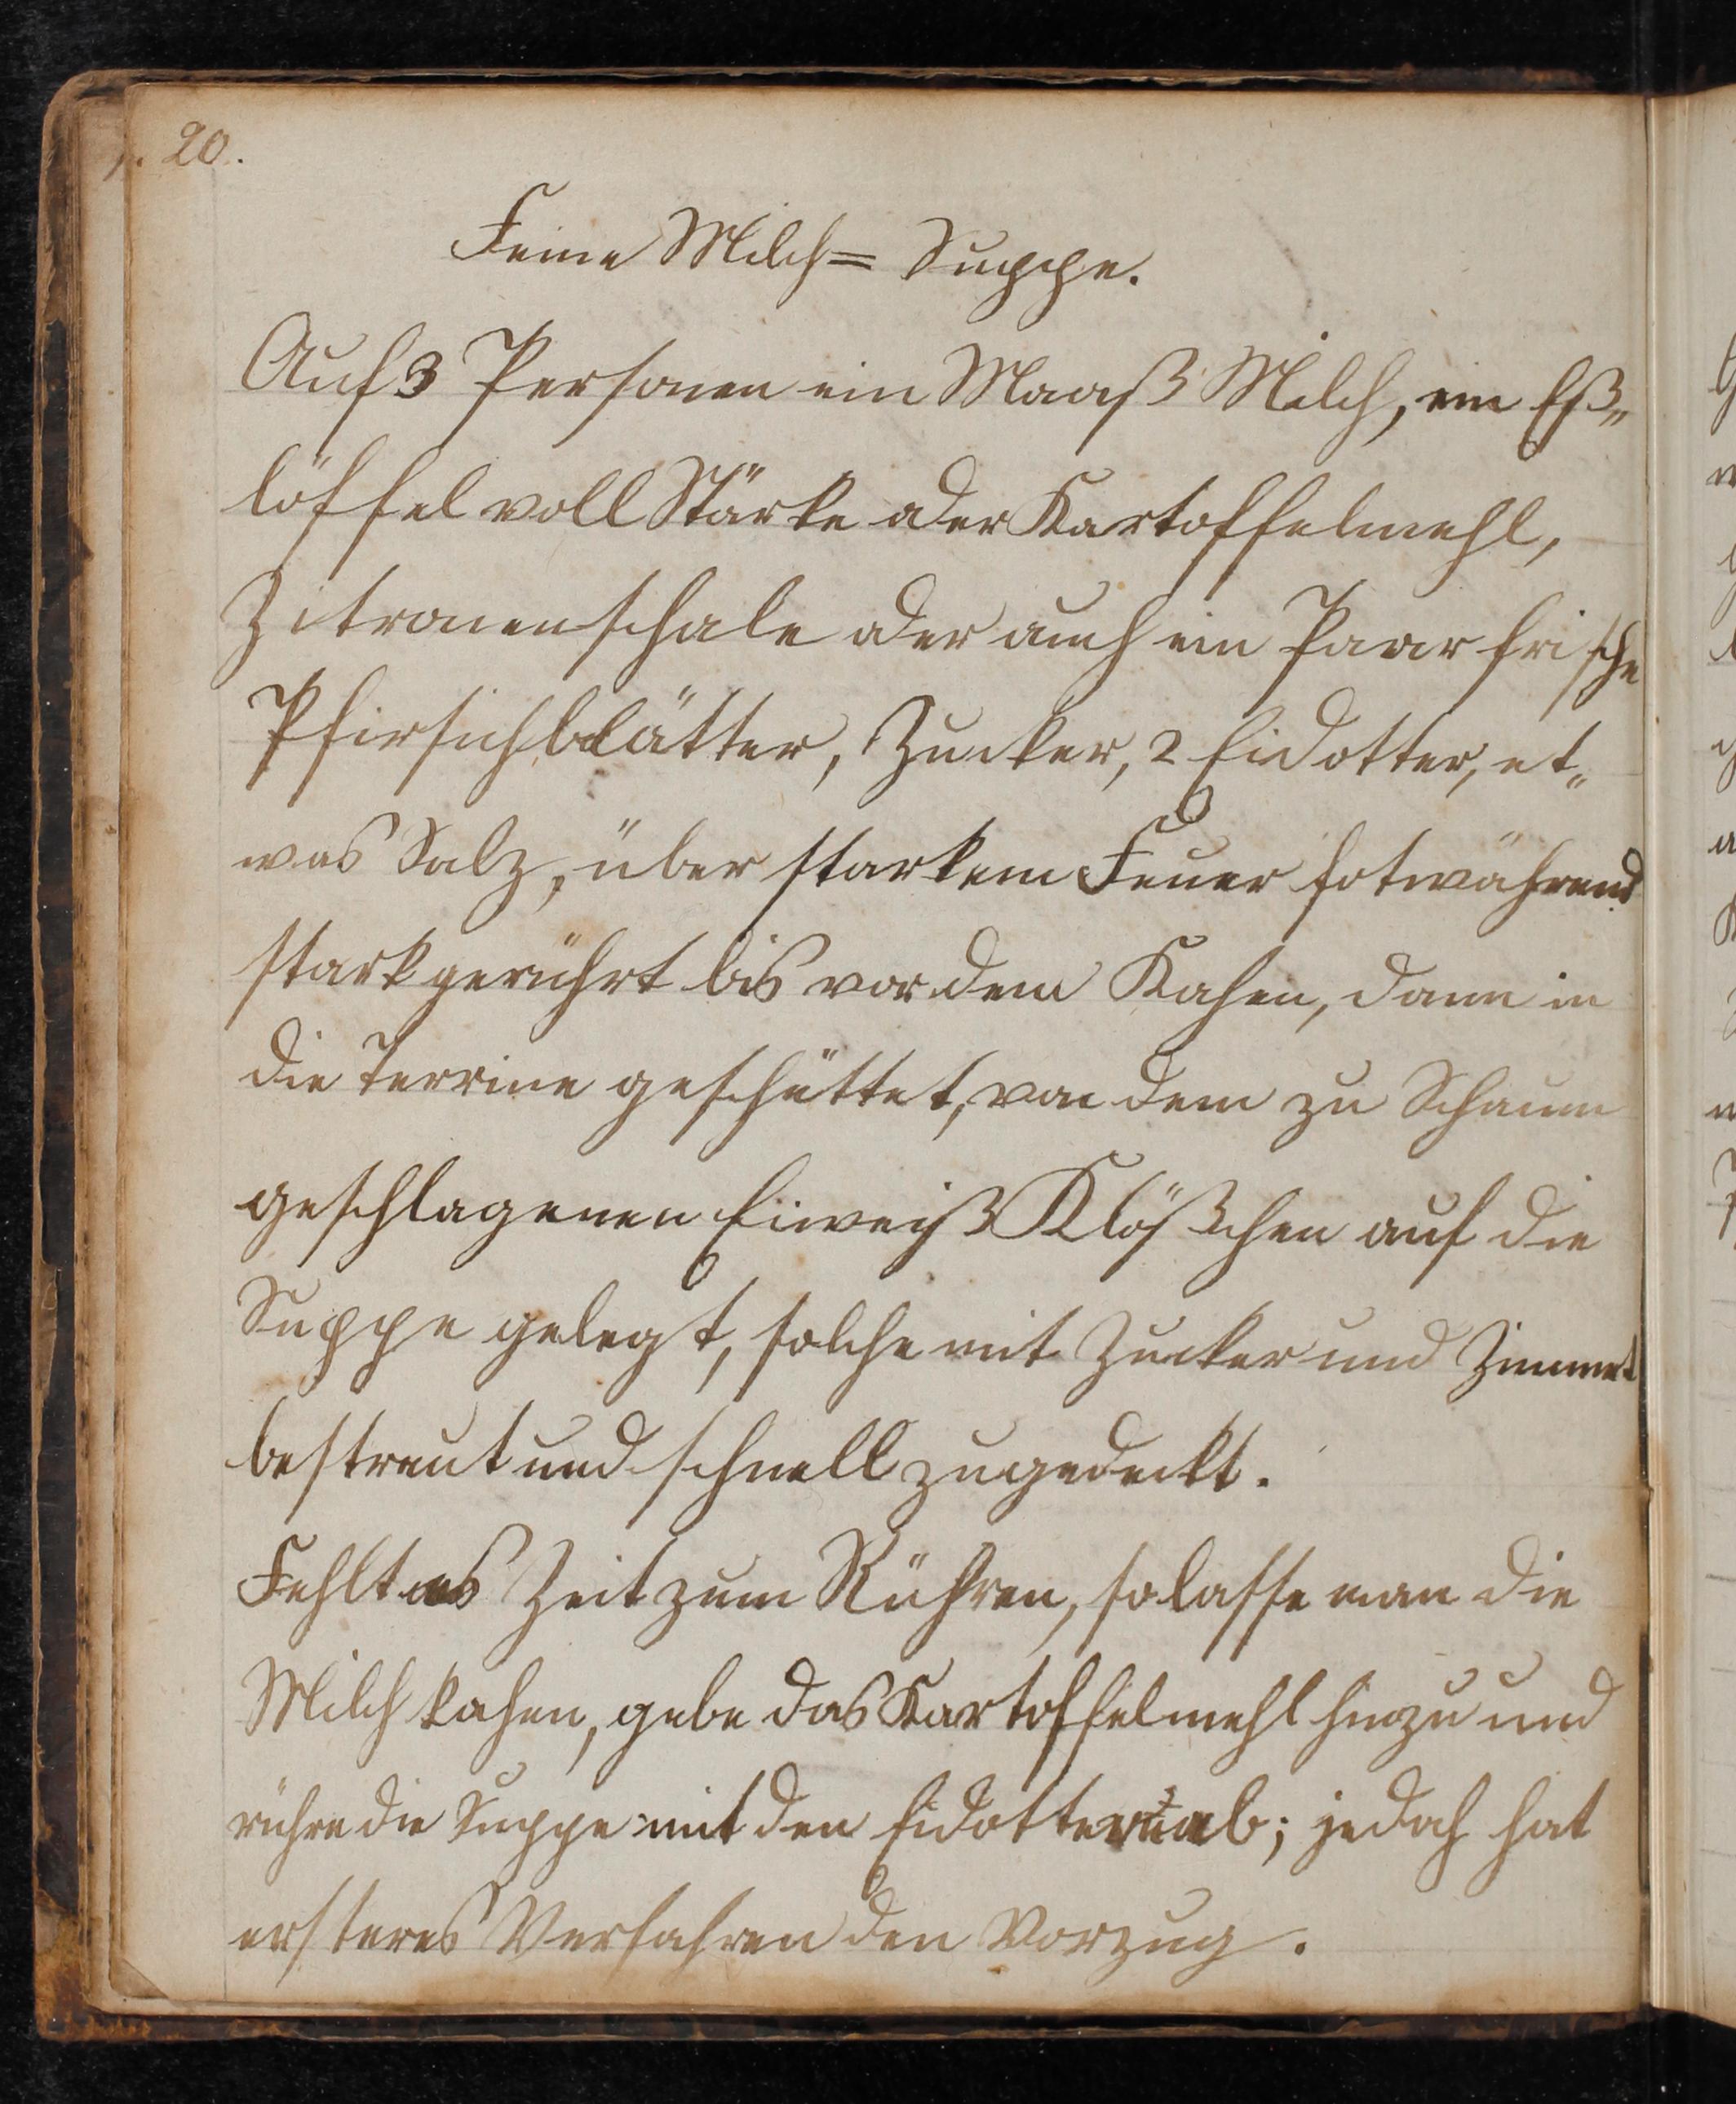 p. 20.
Feine Milch= Suppe.
Auf 3 Personen ein Maaß Milch, ein Eß„
löffel voll Stärke oder Kartoffelmehl,
Zitronenschale oder auch ein Paar frische
Pfirsichblätter, Zucker, 2 Eidotter, et„
was Salz, über starkem Feuer fotwährend
stark gerührt bis vor dem Kochen, dann in
die Terrine geschüttet, von dem zu Schaum
geschlagenen Eiweiß Klößchen auf die
Suppe gelegt, solche mit Zucker und Zimmet
bestreut und schnell zugedeckt.
Fehlt es Zeit zum Rühren, so lasse man die
Milch kochen, gebe das Kartoffelmehl hinzu und
rühre die Suppe mit den Eidottern ab; jedoch hat
ersteres Verfahren den Vorzug.